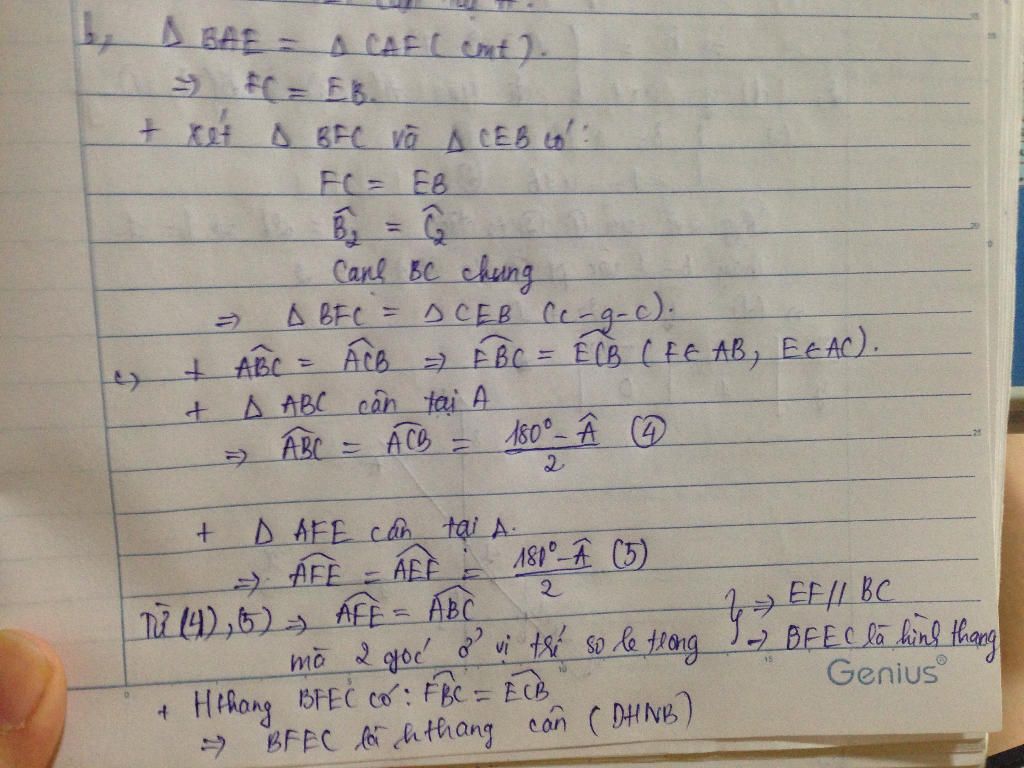 b, Δ BAE = Δ CAF (cmt).
=> FC = EB.
+ xét Δ BFC và Δ CEB có:
FC = EB
B̂₂ = Ĉ₂
Cạnh BC chung
=> Δ BFC = Δ CEB (c-g-c).
c, + ABC^ = ACB^ => FBC^ = ECB^ (F∈ AB, E∈ AC).
+ Δ ABC cân tại A
=> ABC^ = ACB^ = (180° - Â)/2 (4)
+ Δ AFE cân tại A.
=> AFE^ = AEF^ = (180° - Â)/2 (5)
Từ (4), (5) => AFE^ = ABC^ } => EF // BC
mà 2 góc ở vị trí so le trong -> BFEC là hình thang
Genius®
+ Hthang BFEC có: FBC^ = ECB^
=> BFEC là hthang cân (DHNB)